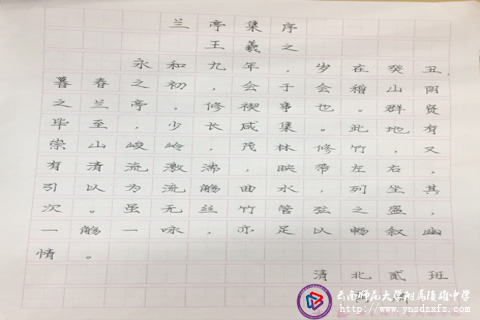 兰亭集序
王羲之
永和九年，岁在癸丑，
暮春之初，会于会稽山阴
之兰亭，修禊事也。群贤
毕至，少长咸集。此地有
崇山峻岭，茂林修竹，又
有清流激湍，映带左右，
引以为流觞曲水，列坐其
次。虽无丝竹管弦之盛，
一觞一咏，亦足以畅叙幽
情。
清北贰班
云南师范大学附属镇雄中学
www.ynsdzxfz.com